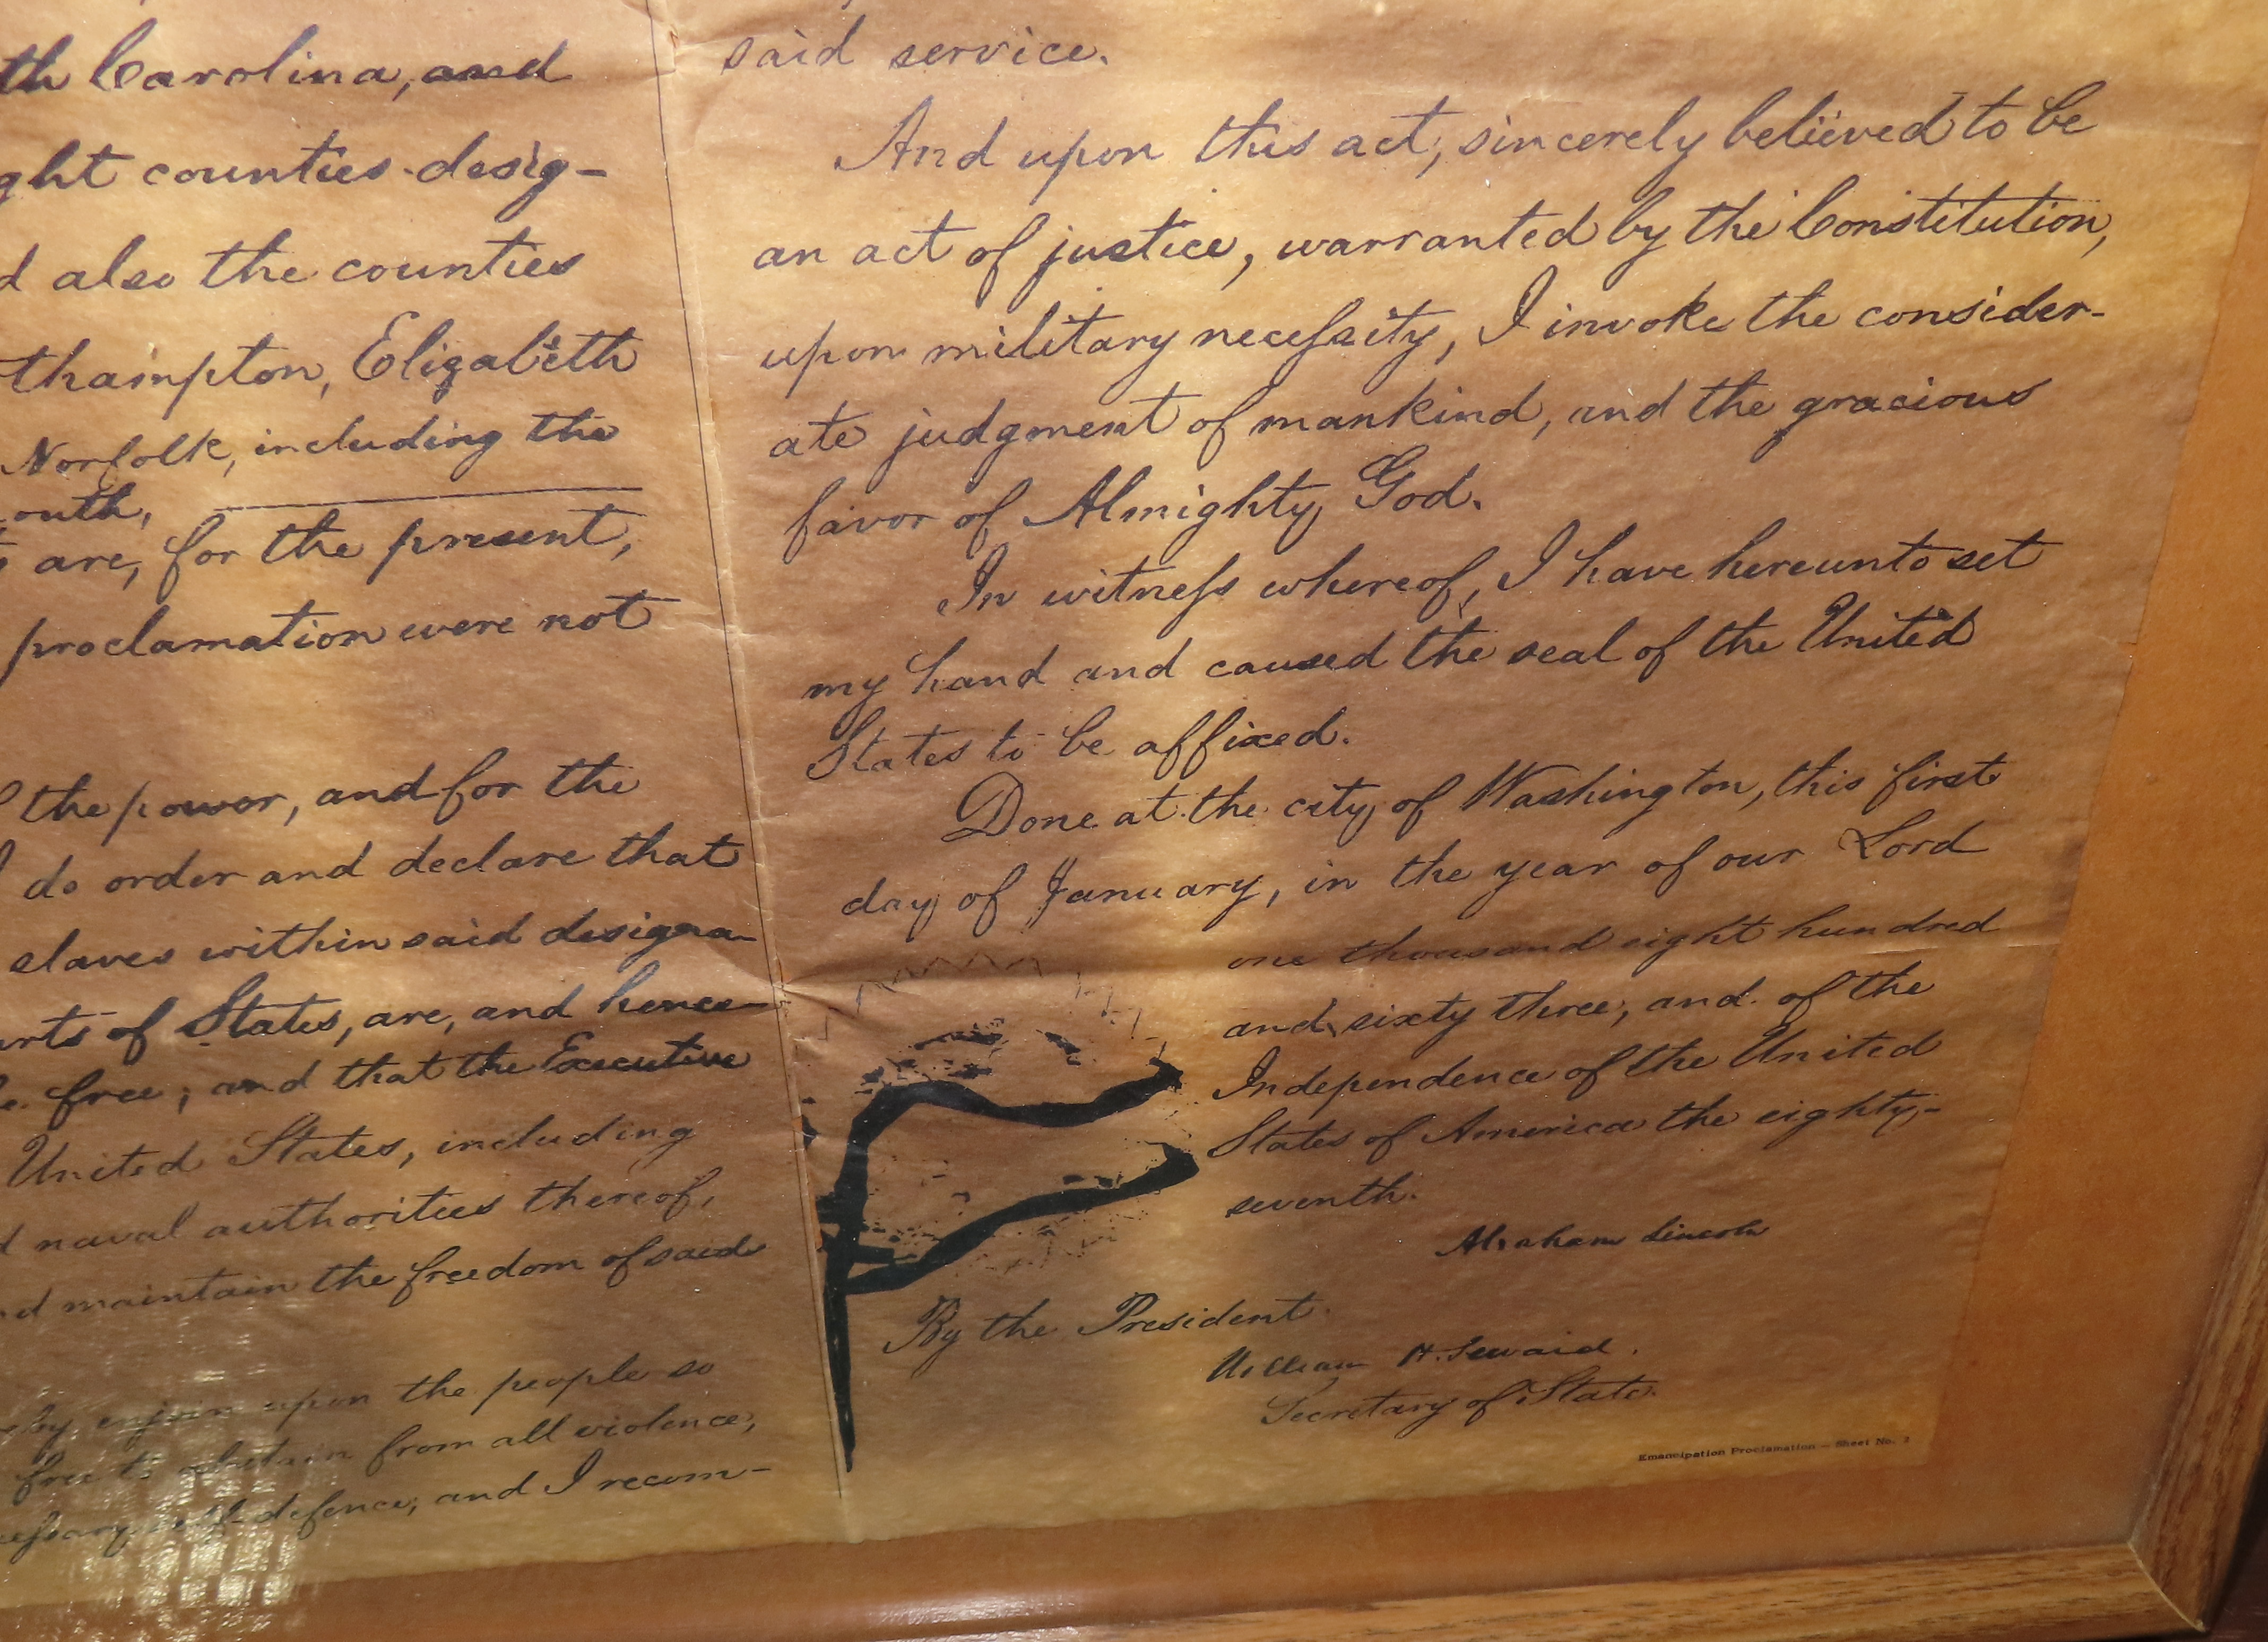 th Carolina, and
ght counties desig-
d also the counties
thampton, Elizabeth
Norfolk, including the
outh,
are, for the present,
proclamation were not
the power, and for the
do order and declare that
slaves within said designa-
rts of States, are, and hence-
free; and that the Executive
United States, including
d naval authorities thereof,
nd maintain the freedom of said
eby enjoin upon the people so
free to abstain from all violence,
cessary self-defence; and I recom-
said service.
And upon this act, sincerely believed to be
an act of justice, warranted by the Constitution,
upon military necessity, I invoke the consider-
ate judgment of mankind, and the gracious
favor of Almighty God.
In witness whereof, I have hereunto set
my hand and caused the seal of the United
States to be affixed.
Done at the city of Washington, this first
day of January, in the year of our Lord
one thousand eight hundred
and sixty three, and of the
Independence of the United
States of America the eighty-
seventh.
Abraham Lincoln
By the President.
William H. Seward.
Secretary of State.
Emancipation Proclamation — Sheet No. 2